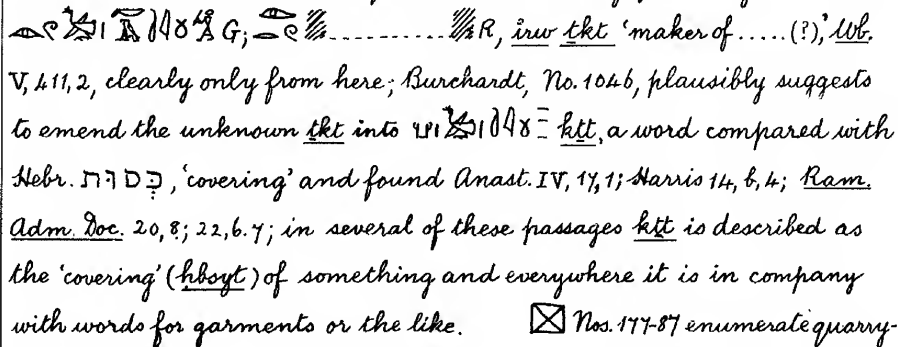 G; R, irw ṯkt 'maker of ..... (?),' Wb.
V, 411, 2, clearly only from here; Burchardt, No. 1046, plausibly suggests
to emend the unknown ṯkt into kṯt, a word compared with
Hebr. כְּסוּת, 'covering' and found Anast. IV, 17, 1; Harris 14, b, 4; Ram.
Adm. Doc. 20, 8; 22, 6. 7; in several of these passages kṯt is described as
the 'covering' (ḥbsyt) of something and everywhere it is in company
with words for garments or the like. ☒ Nos. 177-87 enumerate quarry-